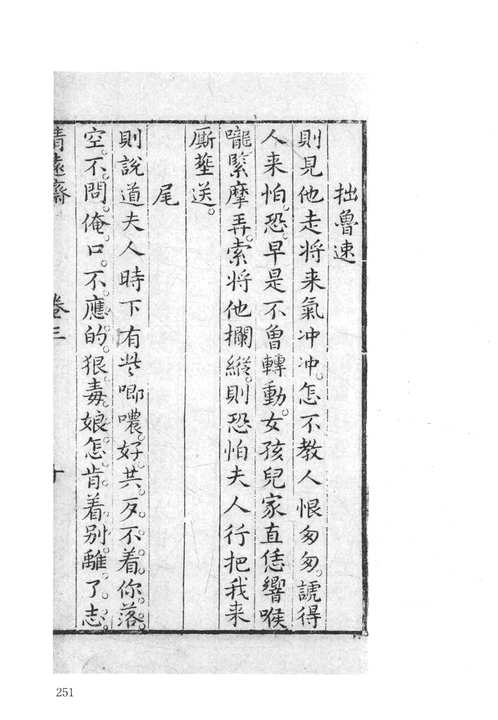 拙魯速
則見他走將来氣冲冲。怎不教人恨匆匆。諕得
人来怕恐。早是不曾轉動。女孩兒家直恁響喉
嚨緊摩弄。索將他攔縱。則恐怕夫人行把我来
厮塟送。
尾
則說道夫人時下有些唧噥。好。共。歹。不。着。你。落。
空。不。問。俺。口。不。應。的。狠。毒。娘。怎。肯。着。别。離。了。志。
清遠齋 卷三 十
251